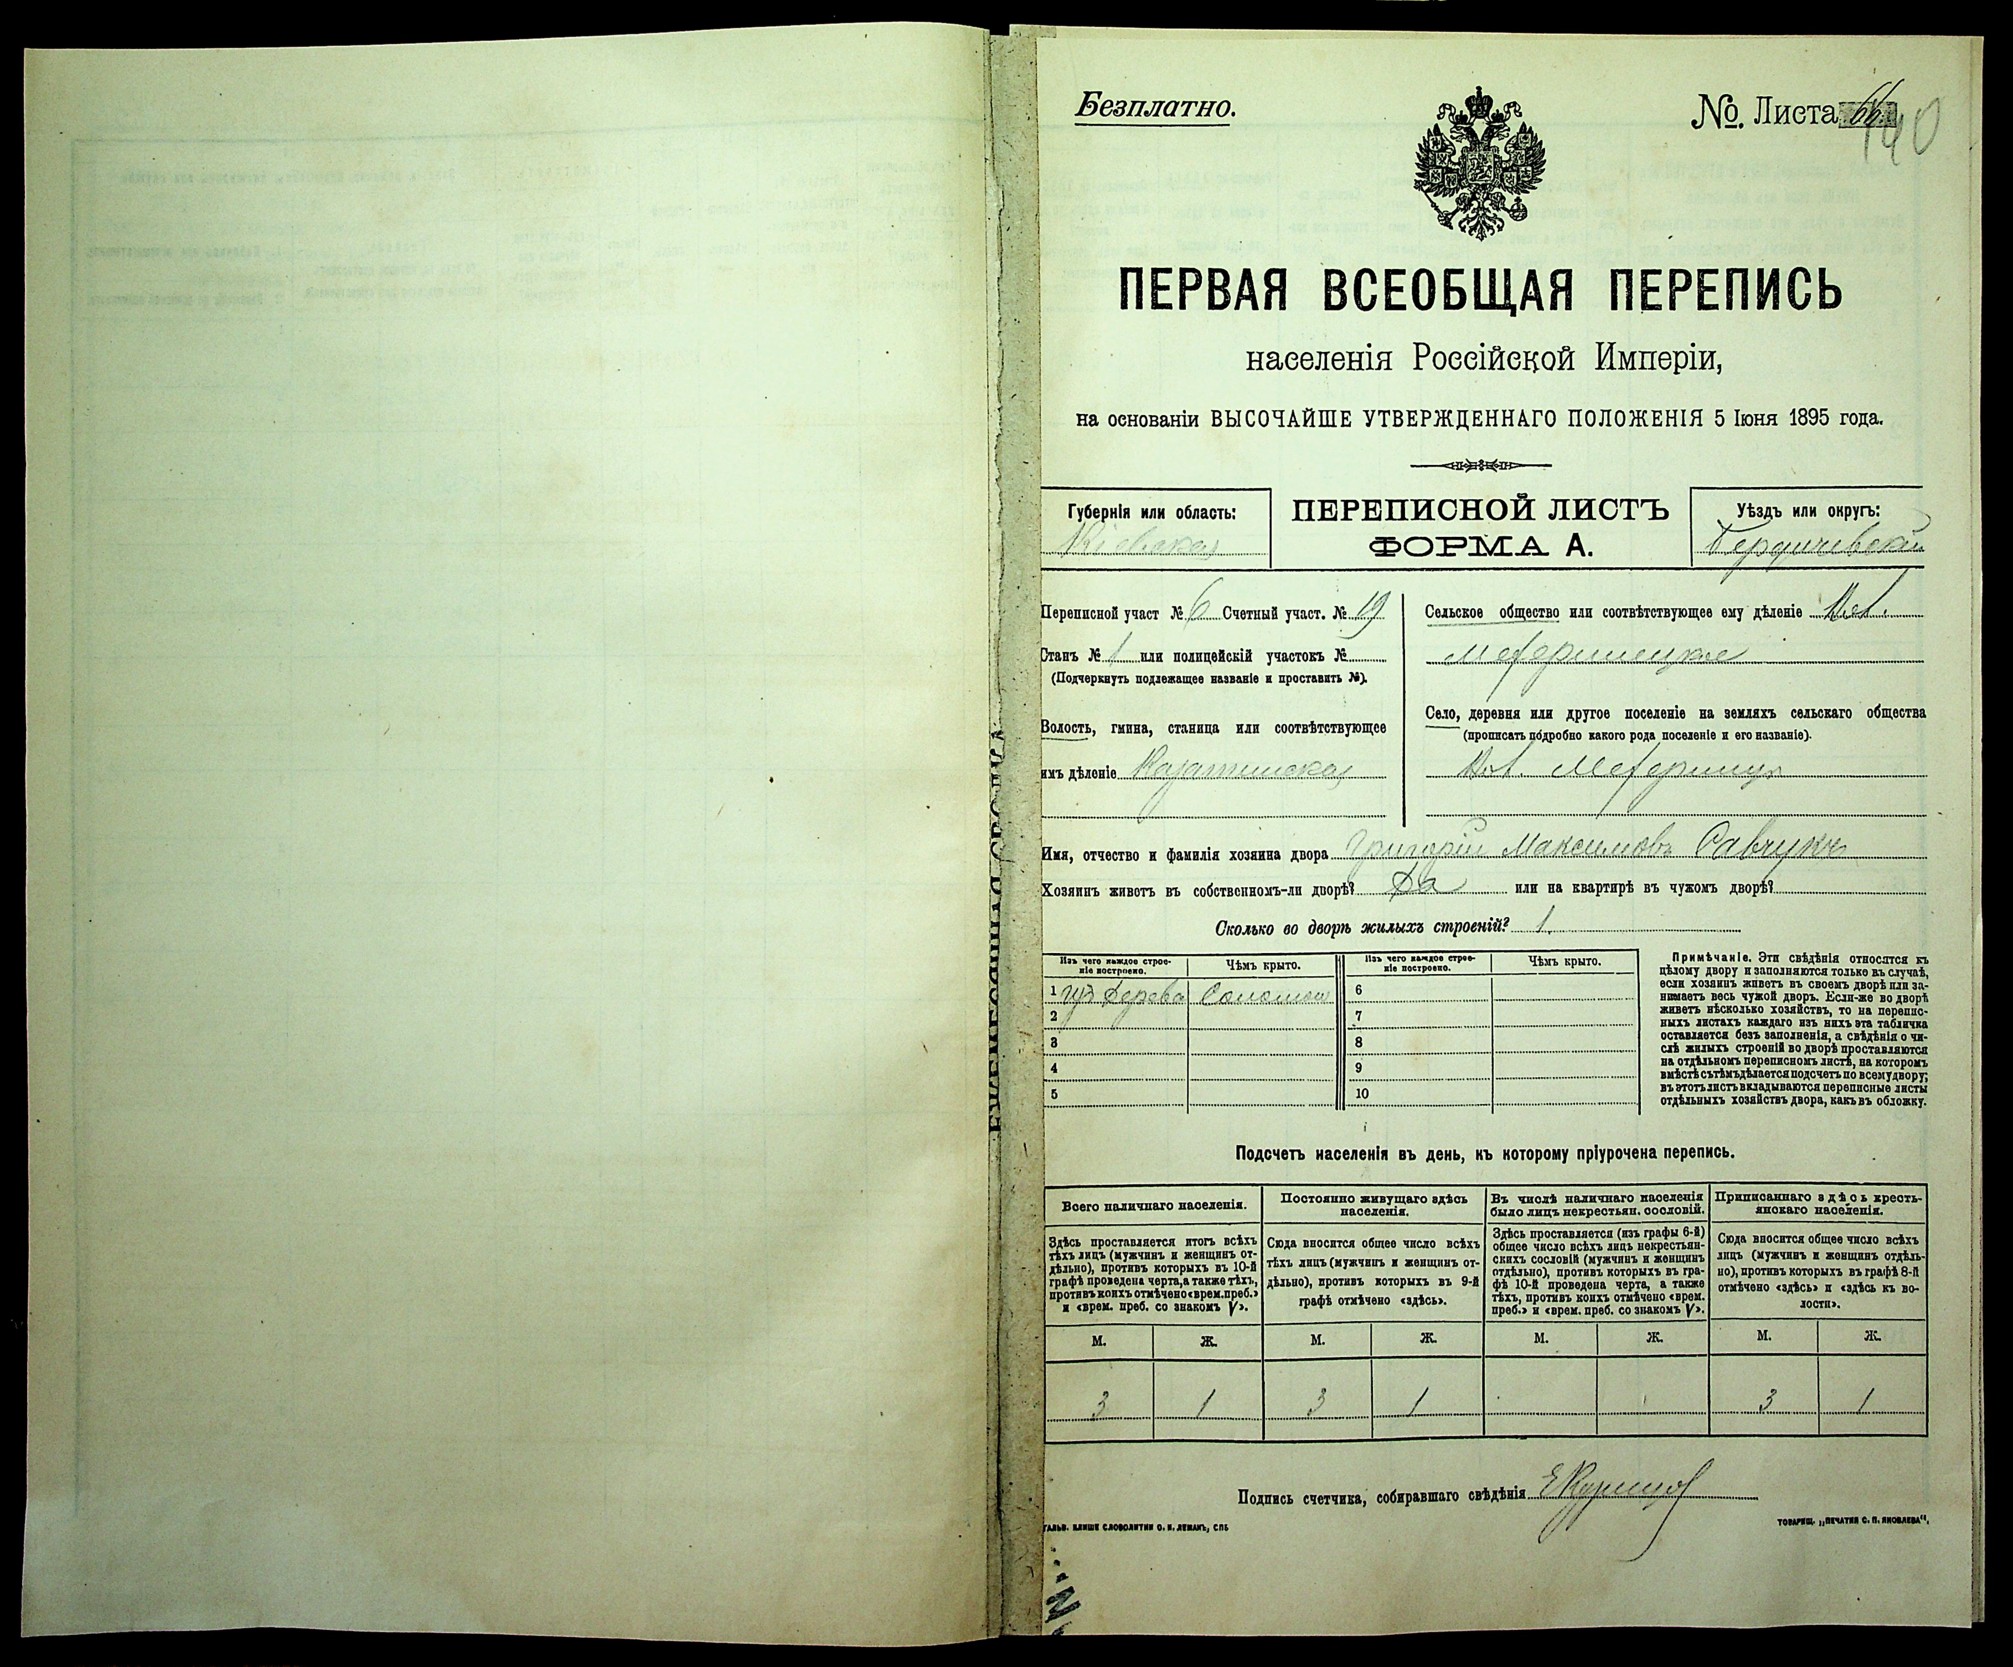 Безплатно.
№ Листа 66.
140
ПЕРВАЯ ВСЕОБЩАЯ ПЕРЕПИСЬ
населенія Россійской Имперіи,
на основаніи ВЫСОЧАЙШЕ УТВЕРЖДЕННАГО ПОЛОЖЕНІЯ 5 Іюня 1895 года.
Губернія или область:
Кіевская
ПЕРЕПИСНОЙ ЛИСТЪ
ФОРМА А.
Уѣздъ или округъ:
Бердичевскій
Переписной участ № 6 Счетный участ. № 19
Станъ № 1 или полицейскій участокъ №
(Подчеркнуть подлежащее названіе и проставить №).
Волость, гмина, станица или соотвѣтствующее
имъ дѣленіе Казатинская
Сельское общество или соотвѣтствующее ему дѣленіе
Село, деревня или другое поселеніе на земляхъ сельскаго общества
(прописать подробно какого рода поселеніе и его названіе).
Имя, отчество и фамилія хозяина двора Григорій Максимовъ Савчукъ
Хозяинъ живетъ въ собственномъ-ли дворѣ? Да или на квартирѣ въ чужомъ дворѣ?
Сколько во дворѣ жилыхъ строеній? 1.
Изъ чего каждое строе-
ніе построено.
Чѣмъ крыто.
Изъ чего каждое строе-
ніе построено.
Чѣмъ крыто.
1 изъ дерева Соломой 6
2 7
3 8
4 9
5 10
Примѣчаніе. Эти свѣдѣнія относятся къ
цѣлому двору и заполняются только въ случаѣ,
если хозяинъ живетъ въ своемъ дворѣ или за-
нимаетъ весь чужой дворъ. Если-же во дворѣ
живетъ нѣсколько хозяйствъ, то на перепис-
ныхъ листахъ каждаго изъ нихъ эта табличка
оставляется безъ заполненія, а свѣдѣнія о чи-
слѣ жилыхъ строеній во дворѣ проставляются
на отдѣльномъ переписномъ листѣ, на которомъ
вмѣстѣ съ тѣмъ дѣлается подсчетъ по всему двору;
въ этотъ листъ вкладываются переписные листы
отдѣльныхъ хозяйствъ двора, какъ въ обложку.
Подсчетъ населенія въ день, къ которому пріурочена перепись.
Всего наличнаго населенія.
Здѣсь проставляется итогъ всѣхъ
тѣхъ лицъ (мужчинъ и женщинъ от-
дѣльно), противъ которыхъ въ 10-й
графѣ проведена черта, а также тѣхъ,
противъ коихъ отмѣчено «врем. преб.»
и «врем. преб. со знакомъ V».
Постоянно живущаго здѣсь
населенія.
Сюда вносится общее число всѣхъ
тѣхъ лицъ (мужчинъ и женщинъ от-
дѣльно), противъ которыхъ въ 9-й
графѣ отмѣчено «здѣсь».
Въ числѣ наличнаго населенія
было лицъ некрестьян. сословій.
Здѣсь проставляется (изъ графы 6-й)
общее число всѣхъ лицъ некрестьян-
скихъ сословій (мужчинъ и женщинъ
отдѣльно), противъ которыхъ въ гра-
фѣ 10-й проведена черта, а также
тѣхъ, противъ коихъ отмѣчено «врем.
преб.» и «врем. преб. со знакомъ V».
Приписаннаго здѣсь кресть-
янскаго населенія.
Сюда вносится общее число всѣхъ
лицъ (мужчинъ и женщинъ отдѣль-
но), противъ которыхъ въ графѣ 8-й
отмѣчено «здѣсь» и «здѣсь къ во-
лости».
М. Ж. М. Ж. М. Ж. М. Ж.
3 1 3 1 3 1
Подпись счетчика, собиравшаго свѣдѣнія
ГАЛЬВ. КЛИШЕ СЛОВОЛИТНИ О. И. ЛЕМАНЪ, СПБ
ТОВАРИЩ. „ПЕЧАТНЯ С. П. ЯКОВЛЕВА“.